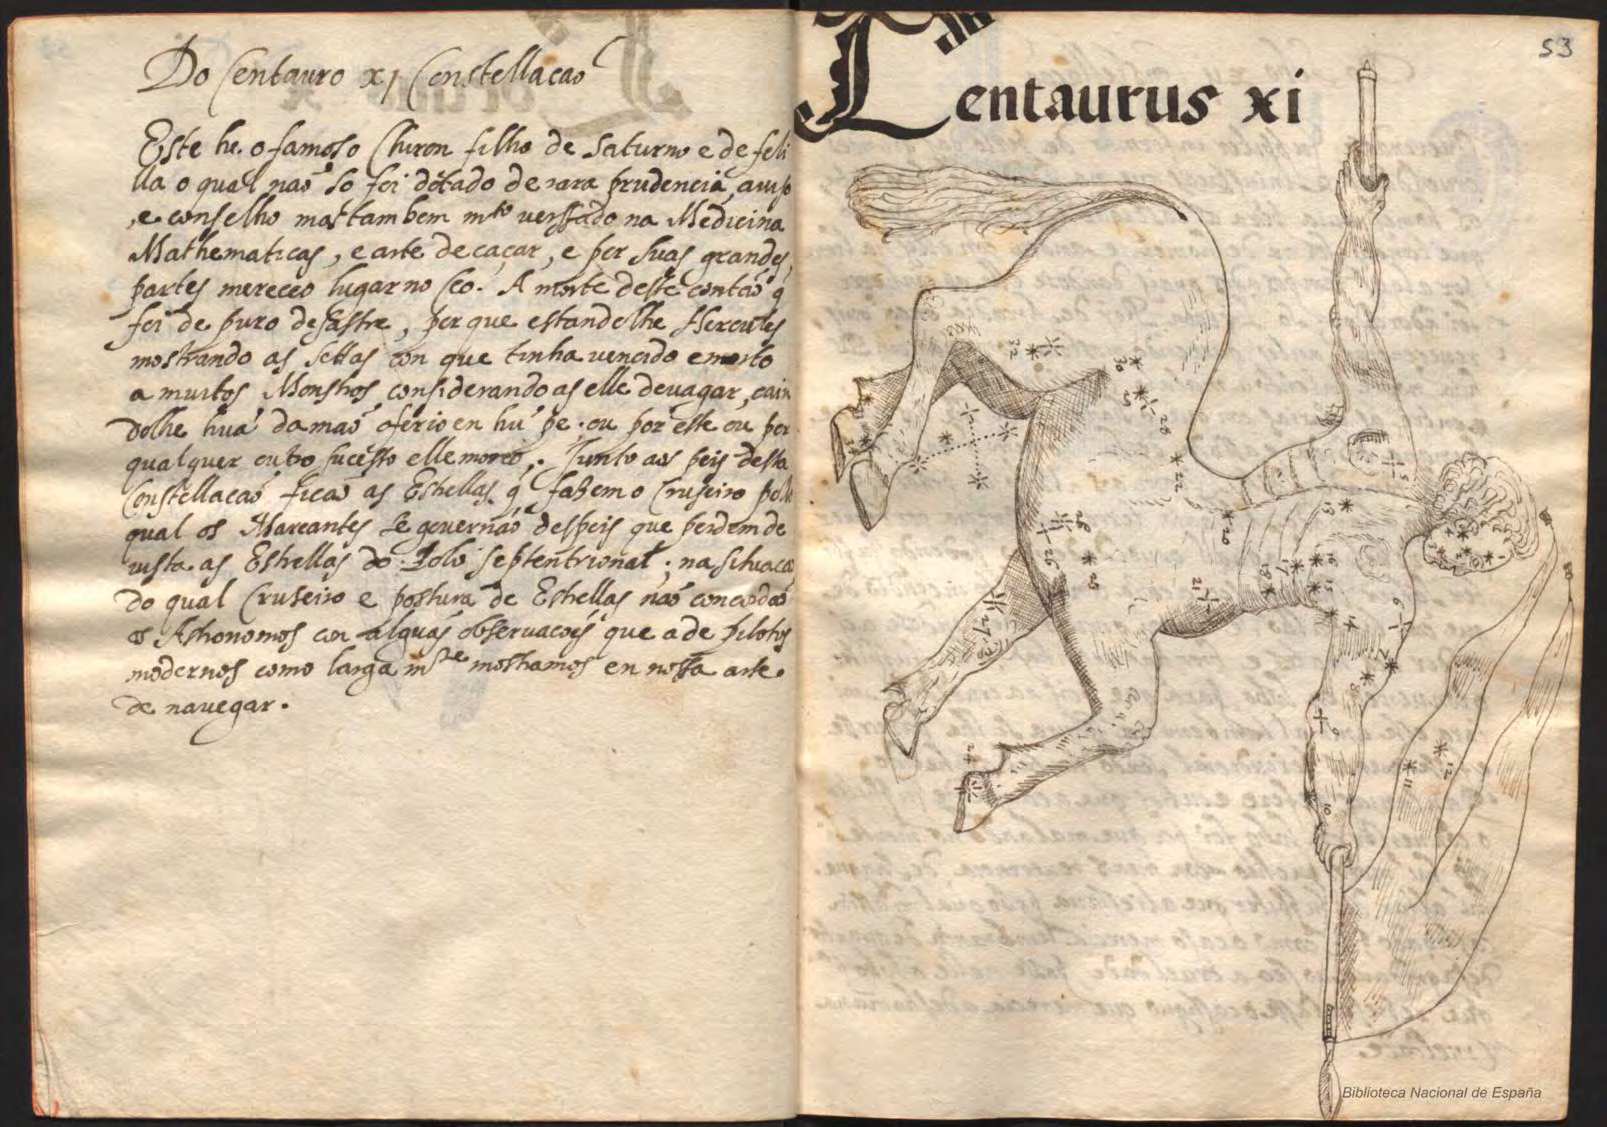 Do Centauro xj Constellacaõ
Este he o famoso Chiron filho de Saturno e de feli
lla o qual naõ so foi dotado de rara prudencia, auiso
, e conselho mas tambem mto versado na Medicina
Mathematicas, e arte de caçar, e por suas grandes
partes mereceo lugar no Ceo. A morte deste contaõ q̃
foi de puro desastre, porque estandolhe Hercules
mostrando as settas con que tinha vencido e morto
a muitos Monstros considerandoas elle deuagar, cain
dolhe huã da maõ o ferio en hũ pe. ou por este ou por
qualquer outro sucesso elle moreo. Junto aos peis desta
Constellacaõ ficaõ as Estrellas q̃ fazem o Cruseiro pello
qual os Mareantes se gouernaõ despois que perdem de
uista as Estrellas do Polo septentrional; na situacaõ
do qual Cruseiro e postura de Estrellas naõ concordaõ
os Astronomos con alguãs obseruacoĩs que a de pilotos
modernos como larga mte mostramos en nossa arte
de nauegar.
Centaurus xi
53
32
30
28
22
20
13
26
21
18
17
16
15
14
6
7
8
9
11
12
Biblioteca Nacional de España